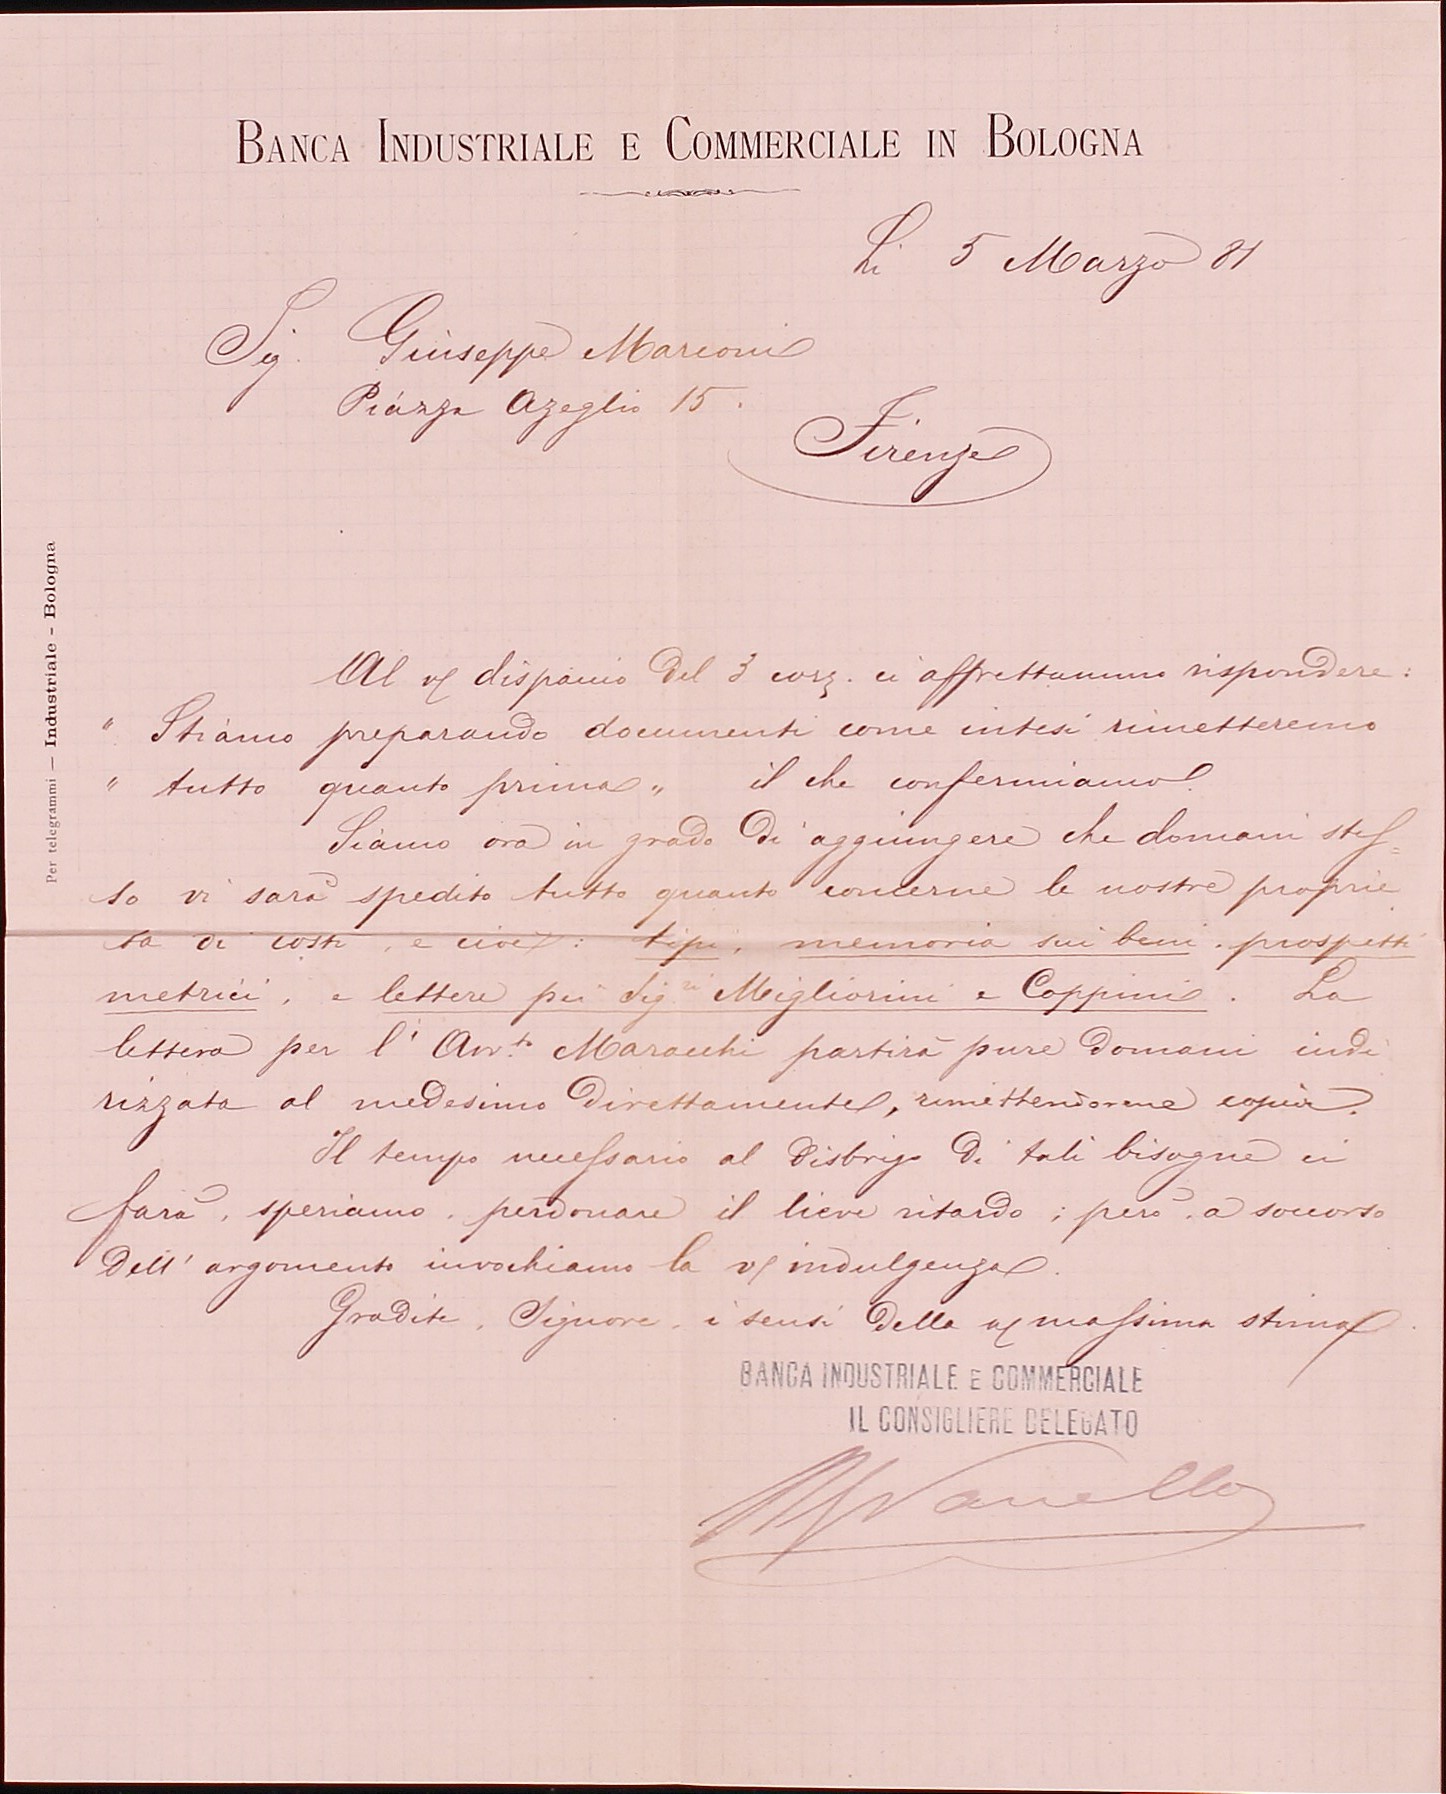 BANCA INDUSTRIALE E COMMERCIALE IN BOLOGNA
Li 5 Marzo 81
Sig. Giuseppe Marconi
Piazza Azeglio 15.
Firenze
Per telegrammi — Industriale - Bologna
Al v/ dispaccio del 3 corr. ci affrettammo rispondere:
" Stiamo preparando documenti come intesi rimetteremo
" tutto quanto prima „ il che confermiamo.
Siamo ora in grado di aggiungere che domani stes=
so vi sarà spedito tutto quanto concerne le nostre proprie
tà di costì, e cioè: tipi, memoria sui beni, prospetti
metrici, e lettere pei Sigri Migliorini e Coppini. La
lettera per l'Avvto Maracchi partirà pure domani indi
rizzata al medesimo direttamente, rimettendovene copia.
Il tempo necessario al disbrigo di tali bisogne ci
farà, speriamo, perdonare il lieve ritardo; però, a soccorso
dell'argomento invochiamo la v/ indulgenza.
Gradite, Signore, i sensi della n/ massima stima.
BANCA INDUSTRIALE E COMMERCIALE
IL CONSIGLIERE DELEGATO